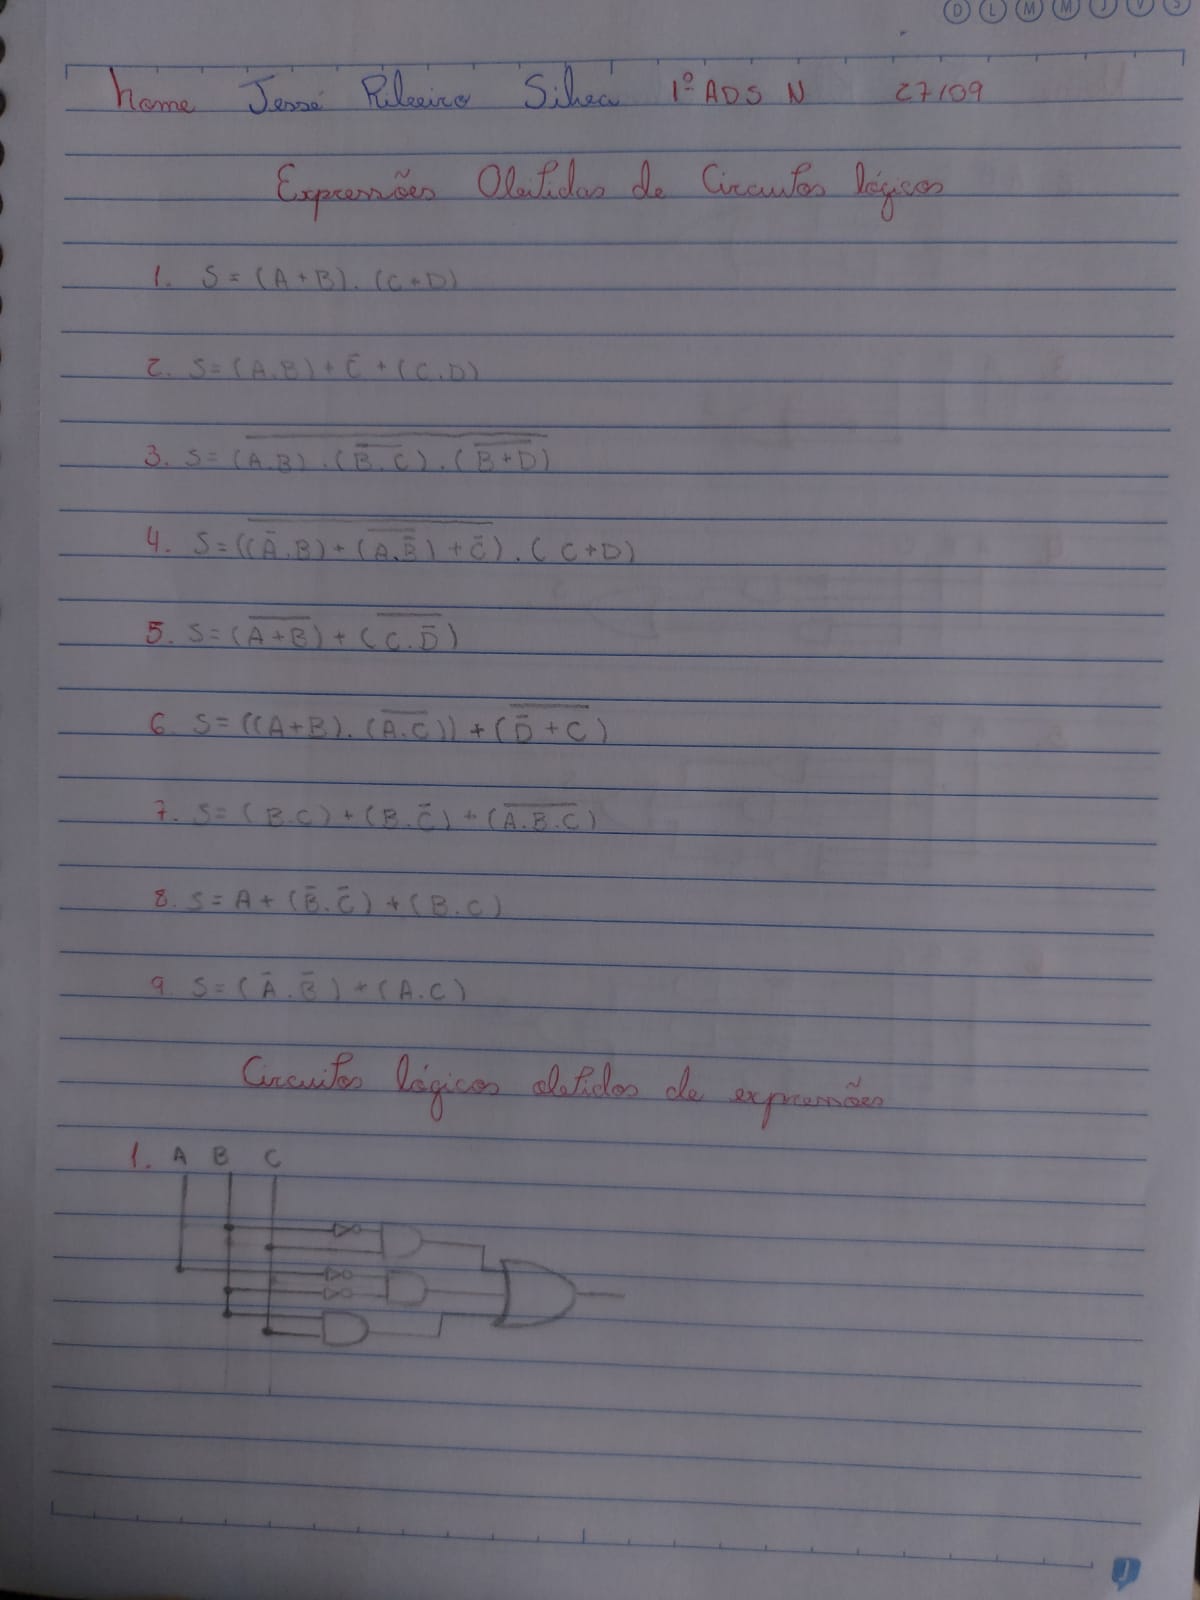 D L M M J V S
Nome Jessé Ribeiro Silva 1º ADS N 27/09
Expressões Obtidas de Circuitos lógicos
1. S = (A+B).(C+D)
2. S = (A.B) + C̅ + (C.D)
3. S = (A̅.̅B̅)̅ ̅.̅ ̅(̅B̅.̅C̅)̅ ̅.̅ ̅(̅B̅+̅D̅)̅
4. S = ((A̅.B) + (A̅.̅B̅) + C̅) . (C+D)
5. S = (A̅+̅B̅) + (C̅.̅D̅)
6. S = ((A+B).(A̅.̅C̅)) + (D̅+̅C̅)
7. S = (B.C) + (B.C̅) + (A̅.̅B̅.̅C̅)
8. S = A + (B̅.C̅) + (B.C)
9. S = (A̅.B̅) + (A.C)
Circuitos lógicos obtidos de expressões
1. A B C
J